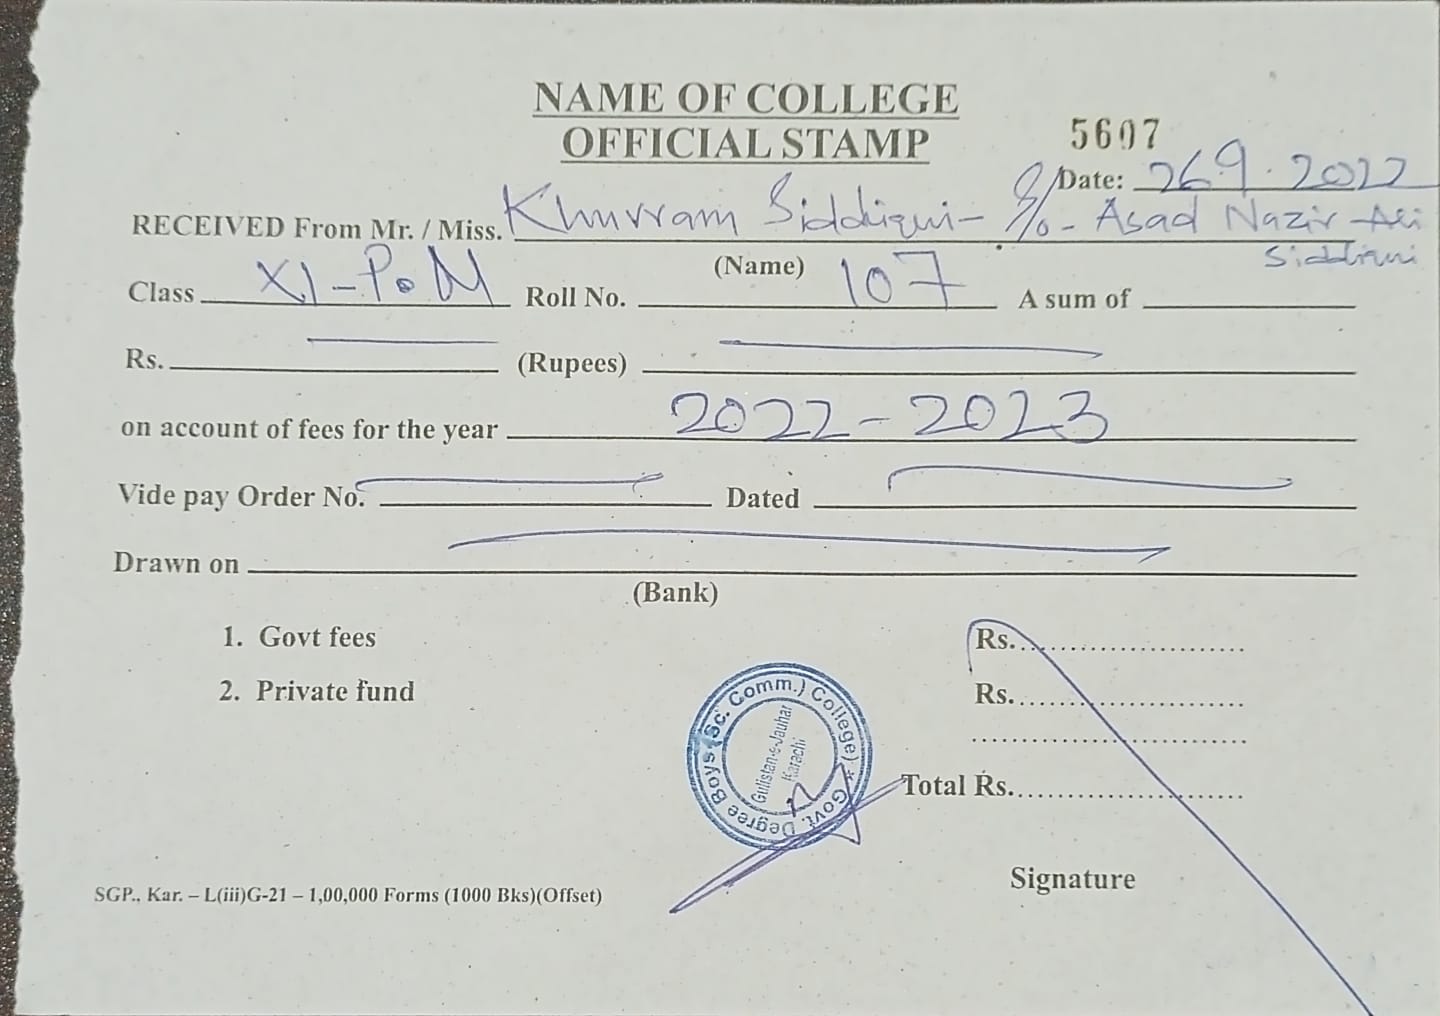 NAME OF COLLEGE
OFFICIAL STAMP
5607
Date: 26 9. 2022
RECEIVED From Mr. / Miss. Khurram Siddiqui - S/o - Asad Nazir Ali
Siddiqui
(Name)
Class XI-P.M Roll No. 107 A sum of
Rs. (Rupees)
on account of fees for the year 2022-2023
Vide pay Order No. Dated
Drawn on
(Bank)
1. Govt fees Rs.
2. Private fund Rs.
Govt. Degree Boys (Sc. Comm.) College)
Gulistan-e-Jauhar
Karachi
Total Rs.
Signature
SGP., Kar. – L(iii)G-21 – 1,00,000 Forms (1000 Bks)(Offset)